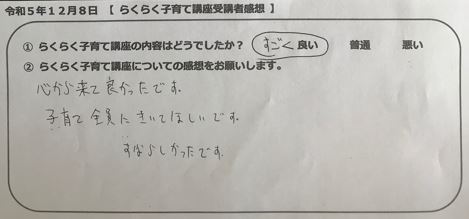 令和5年12月8日 【 らくらく子育て講座受講者感想 】
① らくらく子育て講座の内容はどうでしたか? すごく 良い 普通 悪い
② らくらく子育て講座についての感想をお願いします。
心から来て良かったです。
子育て全員にきいてほしいです。
すばらしかったです。